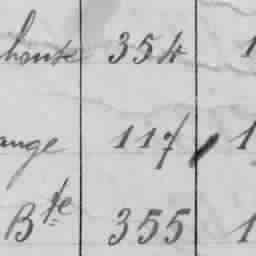 hante 354 1
ange 117 1
Bte 355 1